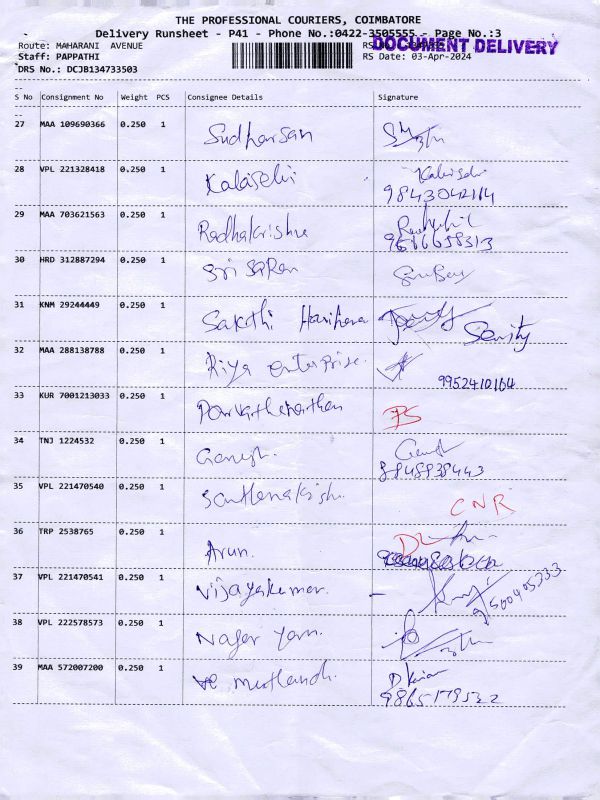 THE PROFESSIONAL COURIERS, COIMBATORE
Delivery Runsheet - P41 - Phone No.:0422-3505555 - Page No.:3
Route: MAHARANI AVENUE
DOCUMENT DELIVERY
Staff: PAPPATHI RS Date: 03-Apr-2024
DRS No.: DCJB134733503
S No Consignment No Weight PCS Consignee Details Signature
27 MAA 109690366 0.250 1 Sudharsan
28 VPL 221328418 0.250 1 Kalaiselvi
9843042114
29 MAA 703621563 0.250 1 Radhakrishna
30 HRD 312887294 0.250 1 Sri Saran
31 KNM 29244449 0.250 1 Sakthi
32 MAA 288138788 0.250 1 Riya enterprise.
9952410164
33 KUR 7001213033 0.250 1
34 TNJ 1224532 0.250 1 Ganesh.
35 VPL 221470540 0.250 1
CNR
36 TRP 2538765 0.250 1 Arun.
37 VPL 221470541 0.250 1 Vijayakumar.
9500405333
38 VPL 222578573 0.250 1
39 MAA 572007200 0.250 1